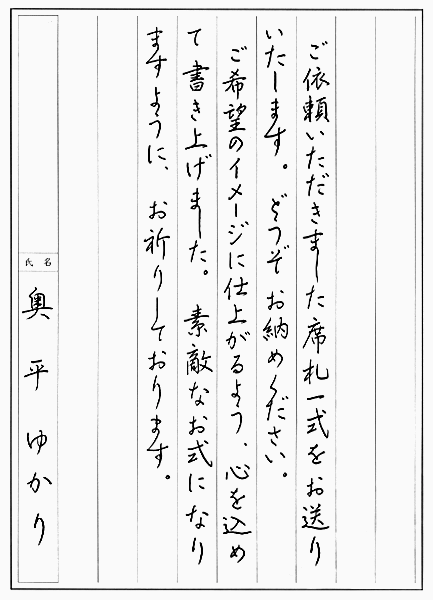 ご依頼いただきました席札一式をお送り
いたします。どうぞお納めください。
ご希望のイメージに仕上がるよう、心を込め
て書き上げました。素敵なお式になり
ますように、お祈りしております。
氏名
奥平ゆかり